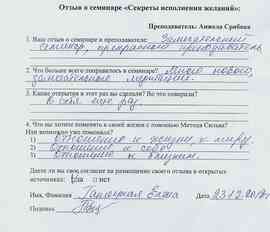 Отзыв о семинаре «Секреты исполнения желаний»:
Преподаватель: Анжела Срибная
1. Ваш отзыв о семинаре и преподавателе: Замечательный
семинар, прекрасный преподаватель
2. Что больше всего понравилось в семинаре? Много нового,
замечательные медитации.
3. Какие открытия в этот раз вы сделали? Во что поверили?
в себя еще раз.
4. Что вы хотите поменять в своей жизни с помощью Метода Сильва?
Или возможно уже поменяли?
1) Отношение к жизни, к миру.
2) Отношение к себе
3) Отношение к близким.
Даете ли вы свое согласие на размещение своего отзыва в открытых
источниках: да нет
Имя, Фамилия Елена Дата 23.12.2018г
Подпись